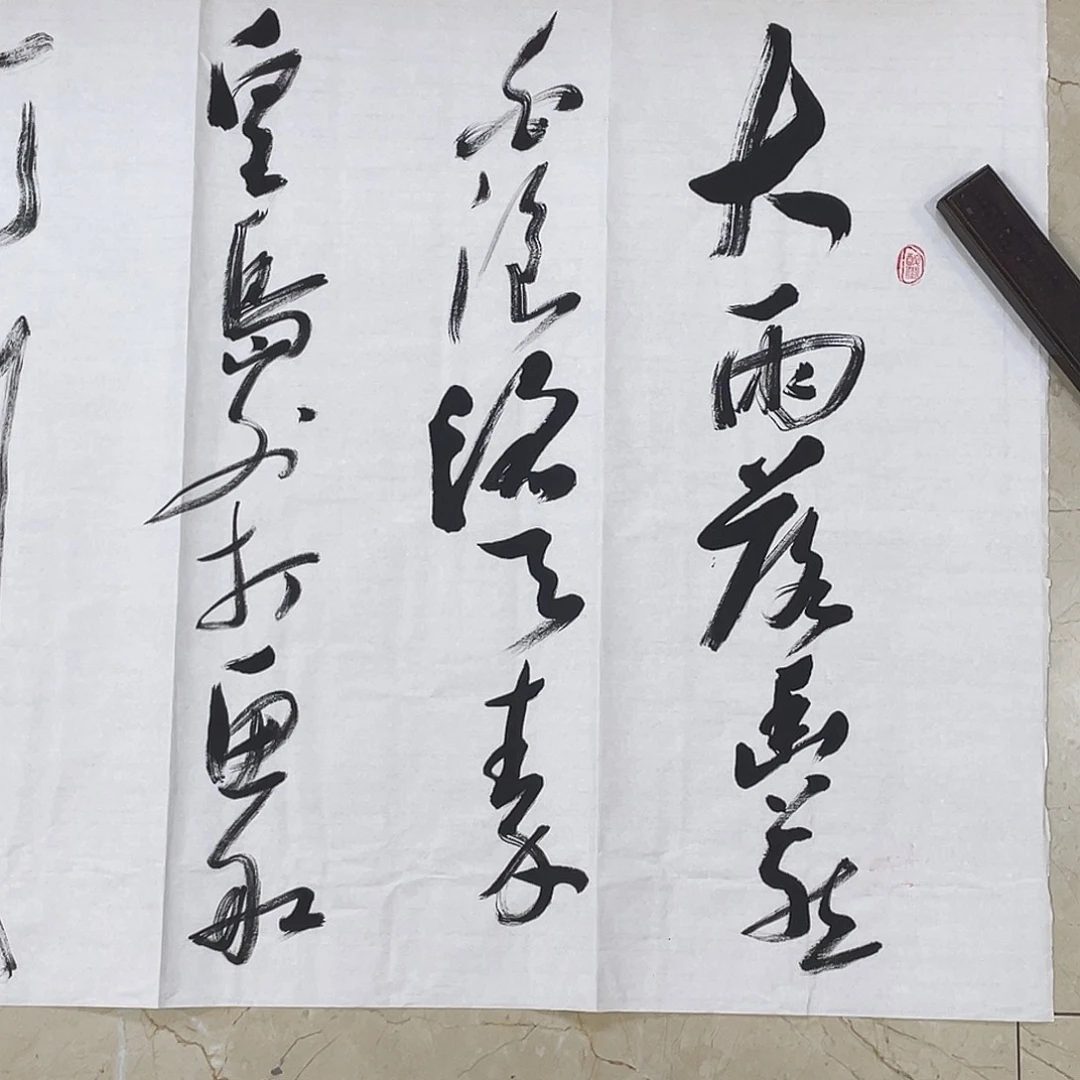 大雨落幽燕
白浪滔天秦
皇岛外打鱼船